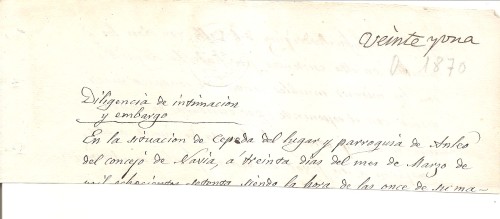 Veinte y una
1870
Diligencia de intimacion
y embargo
En la situacion de Cepeda del lugar y parroquia de Anleo
del concejo de Navia, a treinta dias del mes de Marzo de
mil ochocientos setenta siendo la hora de las once de su ma-